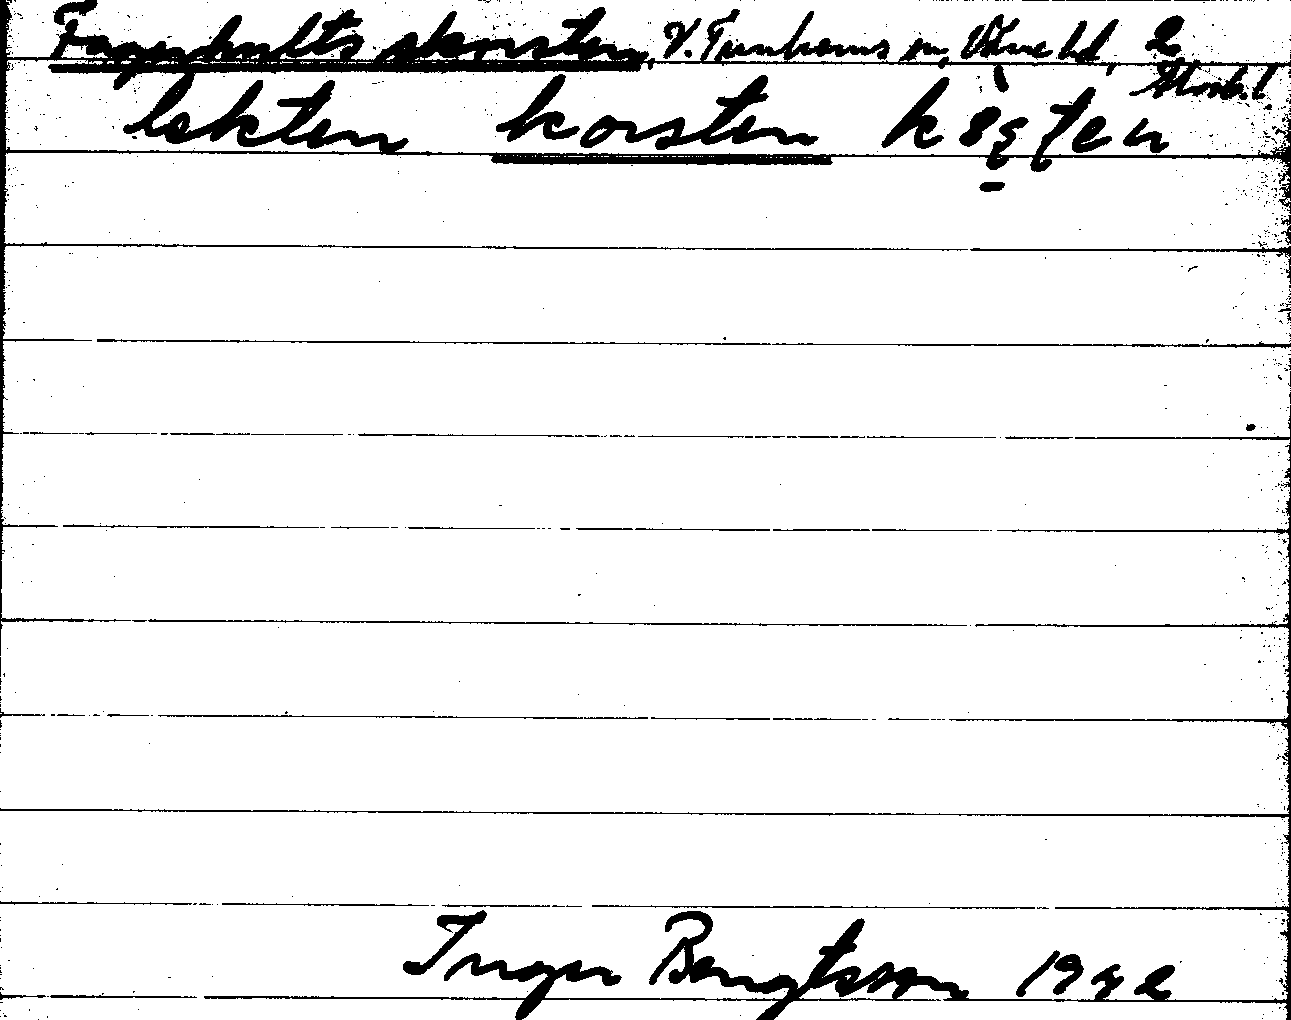 Fagerhults skorsten, V. Tunhems sn, Väne hd, 2
Älvsb. l.
lekten korsten
Inger Bengtsson 1942